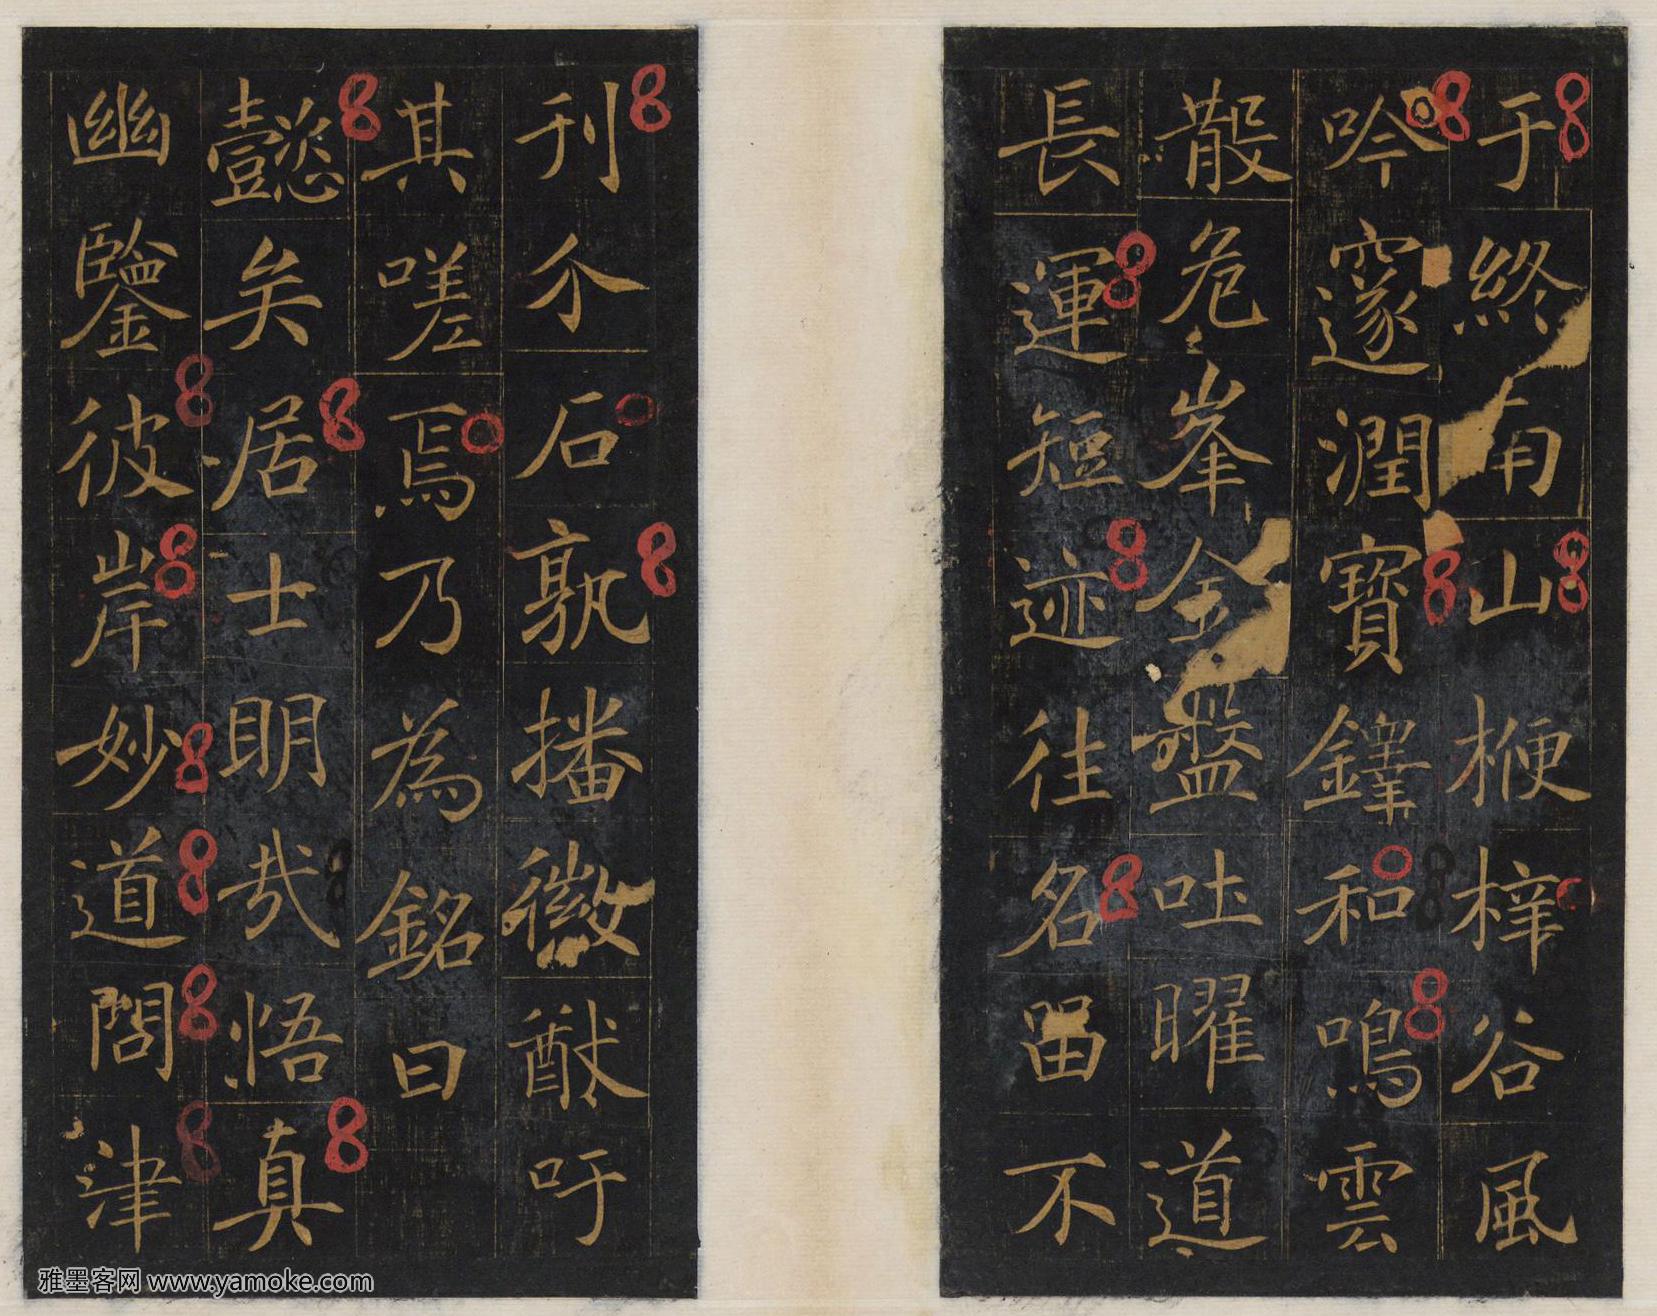 于終南山楩梓谷風
吟邃澗寶鐸和鳴雲
散危峯金盤吐曜道
長運短迹往名留不
刊介石孰播徽猷吁
其嗟焉乃為銘曰
懿矣居士明哉悟真
幽鑒彼岸妙道問津
雅墨客网 www.yamoke.com